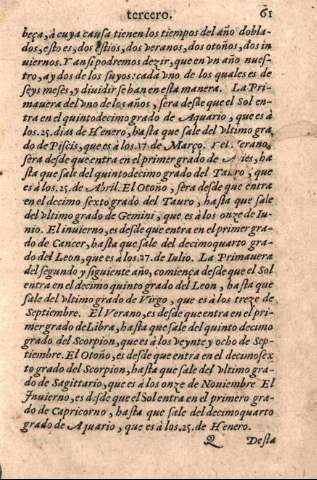 tercero. 61
beça, à cuya causa tienen los tiempos del año dobla-
dos, esto es, dos estios, dos veranos, dos otoños, dos in
uiernos. Y ansi podremos dezir, que en vn año nues-
tro, ay dos de los suyos: cada vno de los quales es de
seys meses, y diuidir se han en esta manera. La Pri-
mauera del vno de los años, sera desde que el Sol en-
tra en el quintodecimo grado de Aquario, que es à
los .25. dias de Henero, hasta que sale del vltimo gra.
do de Piscis, que es à los .17. de Março. El Verano,
sera desde que entra en el primer grado de Aries, ha
sta que sale del quintodecimo grado del Tauro, que
es à los .25. de Abril. El Otoño, sera desde que entra
en el decimo sexto grado del Tauro, hasta que sale
del vltimo grado de Gemini, que es à los onze de Iu-
nio. El inuierno, es desde que entra en el primer gra-
do de Cancer, hasta que sale del decimoquarto gra-
do del Leon, que es à los .27. de Iulio. La Primauera
del segundo y siguiente año, comiença desde que el Sol
entra en el decimo quinto grado del Leon, hasta que
sale del vltimo grado de Virgo, que es à los treze de
Septiembre. El Verano, es desde que entra en el pri-
mer grado de Libra, hasta que sale del quinto decimo
grado del Scorpion, que es à los veynte y ocho de Sep-
tiembre. El Otoño, es desde que entra en el decimosex
to grado del Scorpion, hasta que sale del vltimo gra-
do de Sagittario, que es à los onze de Nouiembre El
Inuierno, es desde que el Sol entra en el primero gra-
do de Capricorno, hasta que sale del decimoquarto
grado de Aquario, que es à los .25. de Henero.
Q Desta